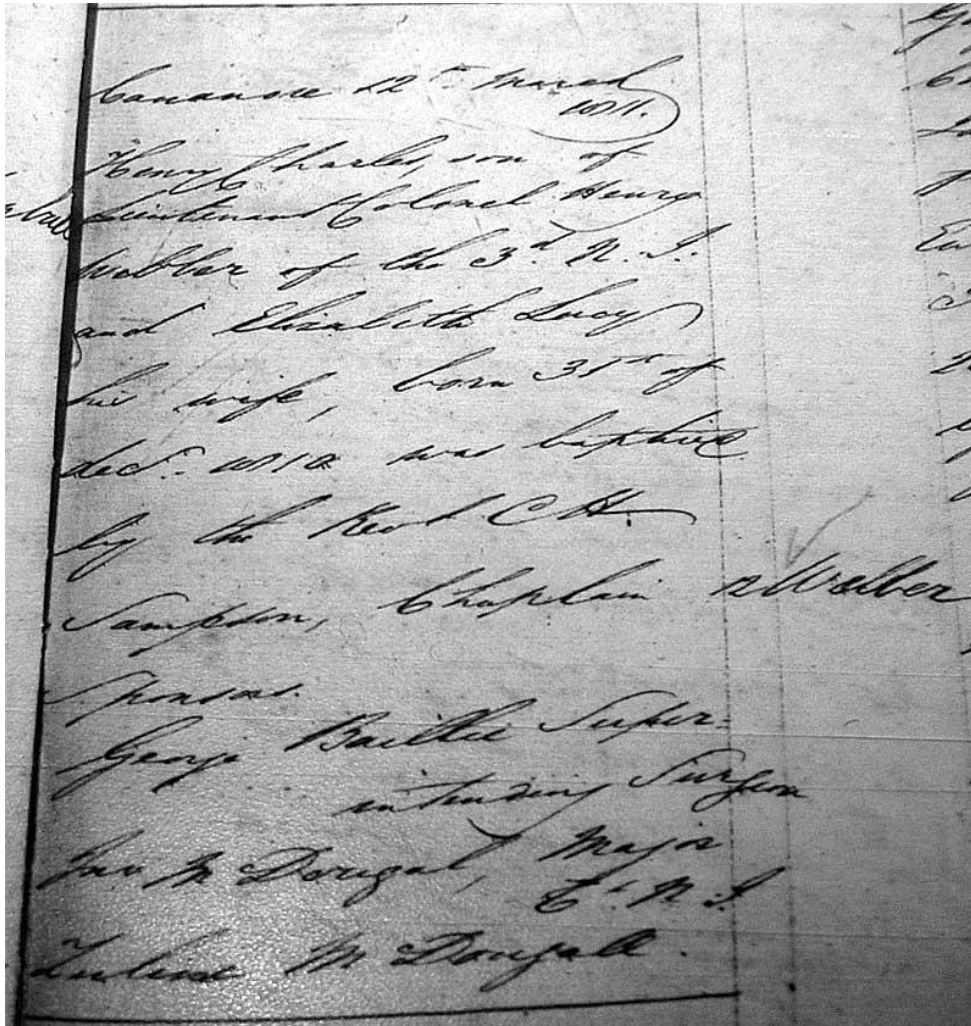 Cananore 12th March
1811.
Henry Charles, son of
Lieutenant Colonel Henry
Webber of the 3d N. I.
and Elizabeth Lucy
his wife, born 31st of
decr. 1810 was baptized
by the Revd C H.
Sampson, Chaplain Webber
Sponsors.
George Baillie Super-
intending Surgeon
Jas. Mc Dougal, Major
N. I.
Mc Dougall.